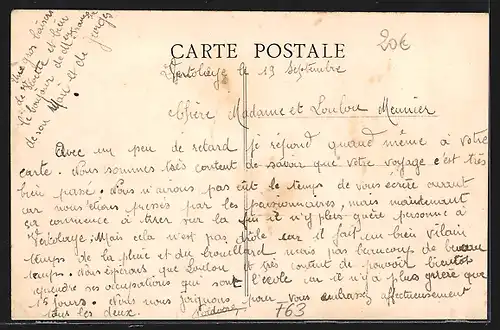 CARTE POSTALE
20€
le 13 Septembre
Chère Madame et Loulou Meunier
Avec un peu de retard je répond quand même à votre
carte. Nous sommes très content de savoir que votre voyage c'est très
bien passé. Nous n'avons pas eût le temps de vous écrire avant
car nous étions pressés par les pensionnaires, mais maintenant
ça commence à tirer sur la fin il n'y plus guère personne à
Mais cela n'est pas drôle car il fait un bien vilain
temps de la pluie et du brouillard mais pas beaucoup de beau
temps. Nous espérons que Loulou et très content de pouvoir bientôt
ses occupations qui sont l'école car il n'y a plus guère que
15 jours. Nous nous joignons pour vous embrasser affectueusement
tous les deux.
763
gros baisers
de et bien
le bonjour de